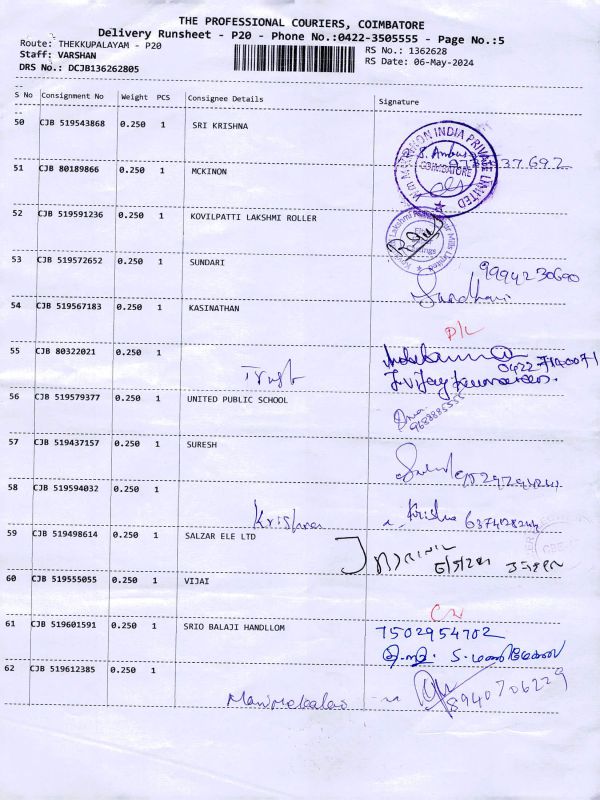 THE PROFESSIONAL COURIERS, COIMBATORE
Delivery Runsheet - P20 - Phone No.:0422-3505555 - Page No.:5
Route: THEKKUPALAYAM - P20
RS No.: 1362628
Staff: VARSHAN
RS Date: 06-May-2024
DRS No.: DCJB136262805
S No Consignment No Weight PCS Consignee Details Signature
50 CJB 519543868 0.250 1 SRI KRISHNA
51 CJB 80189866 0.250 1 MCKINON
INDIA PRIVATE LIMITED
COIMBATORE
52 CJB 519591236 0.250 1 KOVILPATTI LAKSHMI ROLLER
53 CJB 519572652 0.250 1 SUNDARI
9994230690
54 CJB 519567183 0.250 1 KASINATHAN
D/L
55 CJB 80322021 0.250 1
Trust
56 CJB 519579377 0.250 1 UNITED PUBLIC SCHOOL
57 CJB 519437157 0.250 1 SURESH
58 CJB 519594032 0.250 1
Krishna
59 CJB 519498614 0.250 1 SALZAR ELE LTD
60 CJB 519555055 0.250 1 VIJAI
61 CJB 519601591 0.250 1 SRIO BALAJI HANDLLOM
7502954702
62 CJB 519612385 0.250 1
8940706229